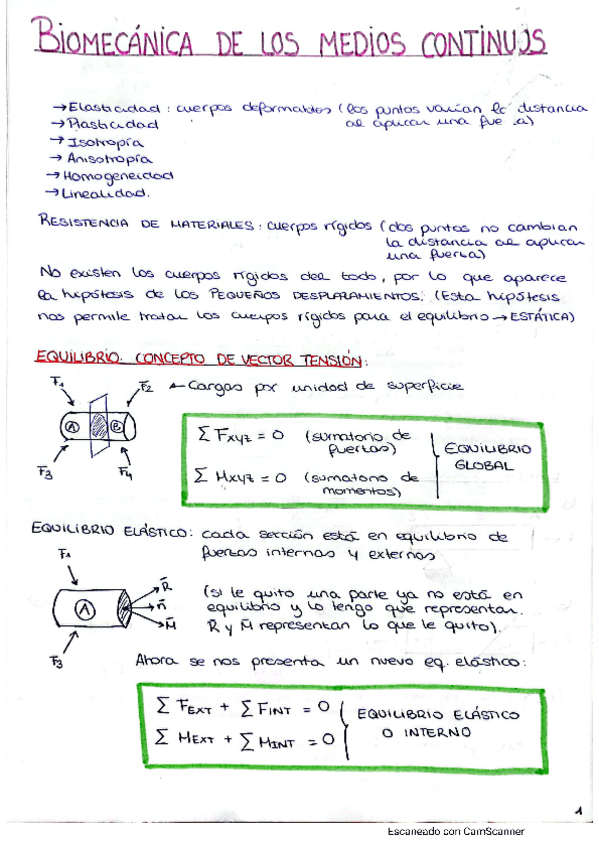 BIOMECÁNICA DE LOS MEDIOS CONTINUOS
→ Elasticidad: cuerpos deformables (los puntos varían la distancia
al aplicar una fue a)
→ Plasticidad
→ Isotropía
→ Anisotropía
→ Homogeneidad
→ Linealidad.
RESISTENCIA DE MATERIALES: cuerpos rígidos (dos puntos no cambian
la distancia al aplicar
una fuerza)
No existen los cuerpos rígidos del todo, por lo que aparece
la hipótesis de los PEQUEÑOS DESPLAZAMIENTOS. (Esta hipótesis
nos permite tratar los cuerpos rígidos para el equilibrio → ESTÁTICA)
EQUILIBRIO. CONCEPTO DE VECTOR TENSIÓN:
F1 F2 ← Cargas por unidad de superficie
A B
F3 F4
Σ Fxyz = 0 (sumatorio de
fuerzas)
Σ Mxyz = 0 (sumatorio de
momentos)
EQUILIBRIO
GLOBAL
EQUILIBRIO ELÁSTICO: cada sección está en equilibrio de
fuerzas internas y externas
F1
A
R̄
n̄
M̄
F3
(si le quito una parte ya no está en
equilibrio y lo tengo que representar.
R y M̄ representan lo que le quito).
Ahora se nos presenta un nuevo eq. elástico:
Σ FEXT + Σ FINT = 0
Σ MEXT + Σ MINT = 0
EQUILIBRIO ELÁSTICO
O INTERNO
1
Escaneado con CamScanner